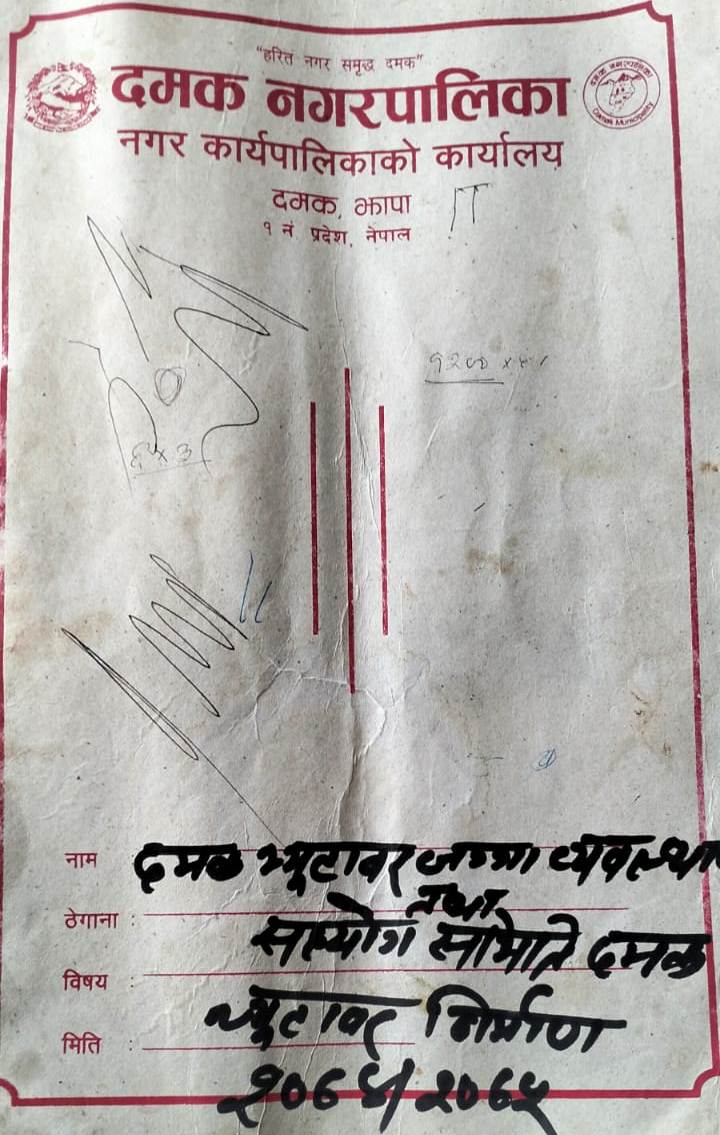 "हरित नगर समृद्ध दमक"
दमक नगरपालिका
नगर कार्यपालिकाको कार्यालय
दमक, झापा
१ नं प्रदेश, नेपाल
दमक नगरपालिका
Damak Municipality
IT
नाम दमक भ्यूटावर जग्गा व्यवस्था
तथा
ठेगाना :
सहयोग समिति दमक
विषय :
भ्यूटावर निर्माण
मिति :